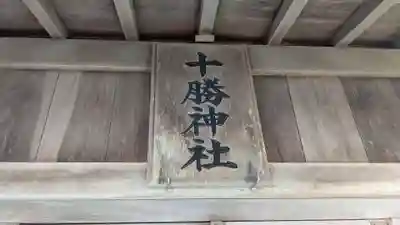 十勝神社